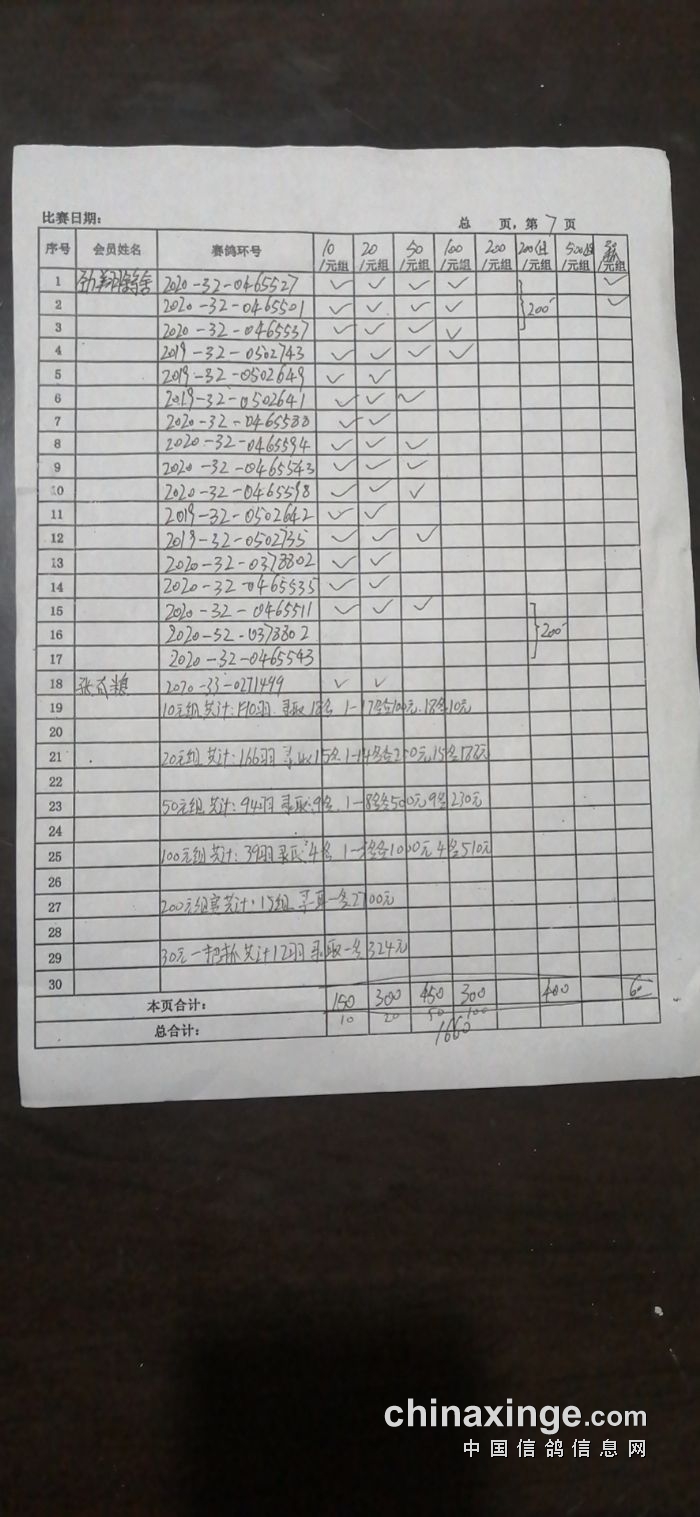 比赛日期: 总 页,第 7 页
序号 会员姓名 赛鸽环号 10/元组 20/元组 50/元组 100/元组 200/元组 200组/元组 500组/元组 /元组
1 2020-32-0465527 ✓ ✓ ✓ ✓ ✓
2 2020-32-0465501 ✓ ✓ ✓ ✓ 200 ✓
3 2020-32-0465537 ✓ ✓ ✓ ✓
4 2019-32-0502743 ✓ ✓ ✓ ✓
5 2019-32-0502649 ✓ ✓
6 2019-32-0502641 ✓ ✓ ✓
7 2020-32-0465588 ✓ ✓
8 2020-32-0465594 ✓ ✓ ✓
9 2020-32-0465543 ✓ ✓ ✓
10 2020-32-0465598 ✓ ✓ ✓
11 2019-32-0502642 ✓ ✓
12 2019-32-0502735 ✓ ✓ ✓
13 2020-32-0378802 ✓ ✓
14 2020-32-0465535 ✓ ✓
15 2020-32-0465511 ✓ ✓ ✓
16 2020-32-0378802 200
17 2020-32-0465543
18 2020-33-0271499 ✓ ✓
19 10元组共计: 羽.录取18名 1-17名各100元.18名10元
20
21 20元组共计:166羽 录取15名 1-14名各250元,15名
22
23 50元组共计:94羽 录取:9名. 1-8名各500元9名230元
24
25 100元组共计:39羽录取:4名 1-3名各1000元4名510元
26
27 200元组赛共计:15组 录取一名2700元
28
29 30元一把抓共计12羽录取一名324元
30
本页合计: 150 300 450 300 400 60
总合计: 10 20 50 100
1660
chinaxinge.com
中国信鸽信息网